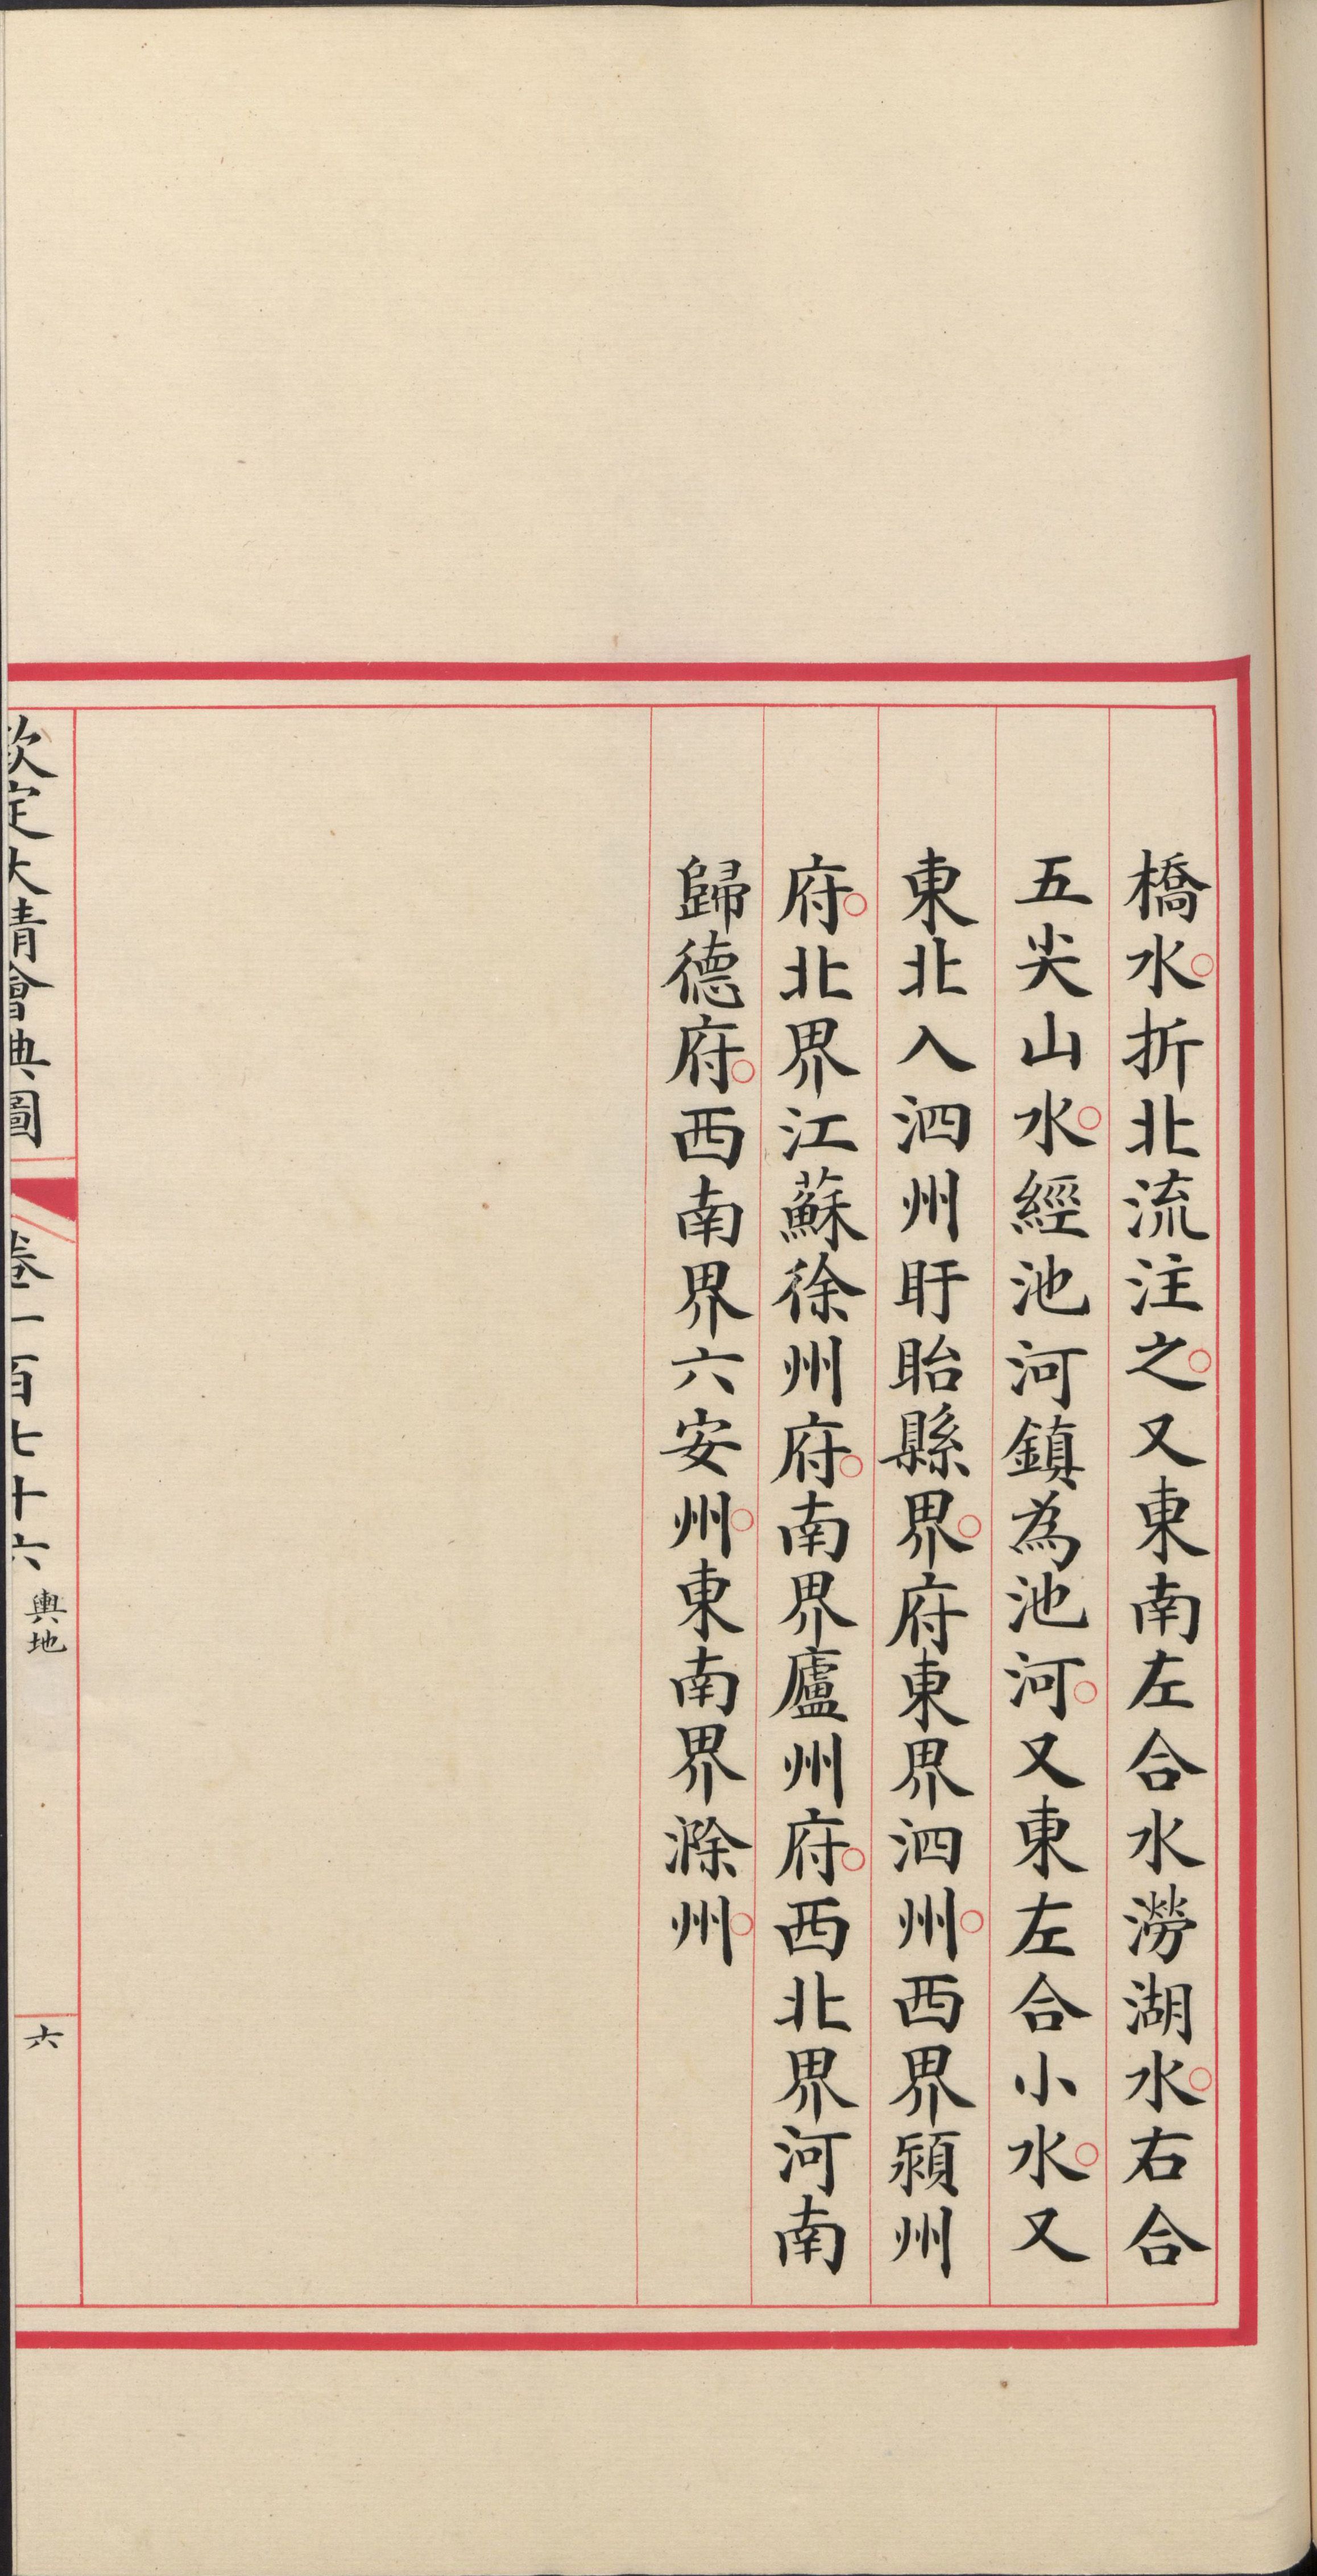 橋水○折北流注之○又東南左合水澇湖水○右合
五尖山水○經池河鎮為池河○又東左合小水○又
東北入泗州盱眙縣界○府東界泗州○西界潁州
府○北界江蘇徐州府○南界廬州府○西北界河南
歸德府○西南界六安州○東南界滁州○
欽定大清會典圖 卷一百七十六 輿地 六